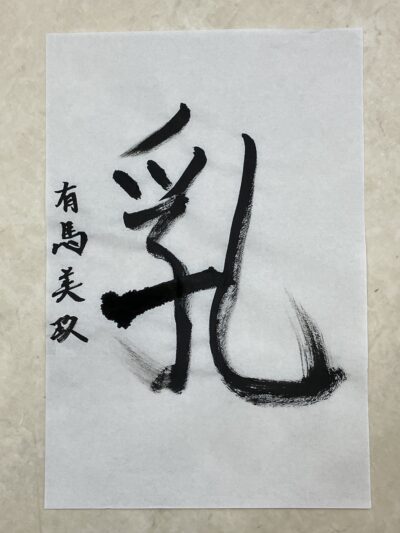 乳
有馬美玖